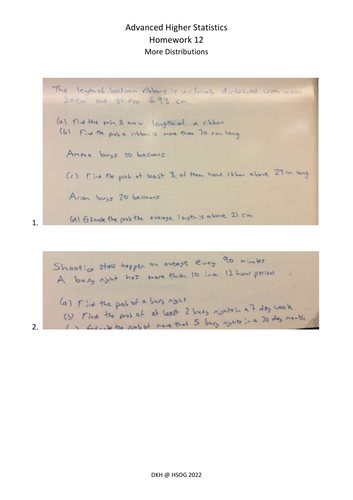 Advanced Higher Statistics
Homework 12
More Distributions
The length of balloon ribbons is uniformly distributed with mean
20cm and st dev 6.93 cm.
(a) Find the min & max length of a ribbon
(b) Find the prob a ribbon is more than 30 cm long
Ameera buys 10 balloons
(c) Find the prob at least 3 of them have ribbon above 25 cm long
Arian buys 20 balloons
(d) Estimate the prob the average length is above 21 cm
1.
Shooting stars happen on average every 90 minutes
A busy night has more than 10 in a 12 hour period
(a) Find the prob of a busy night
(b) Find the prob of at least 2 busy nights in a 7 day week
the prob of more that 5 busy nights in a 30 day month
2.
DKH @ HSOG 2022